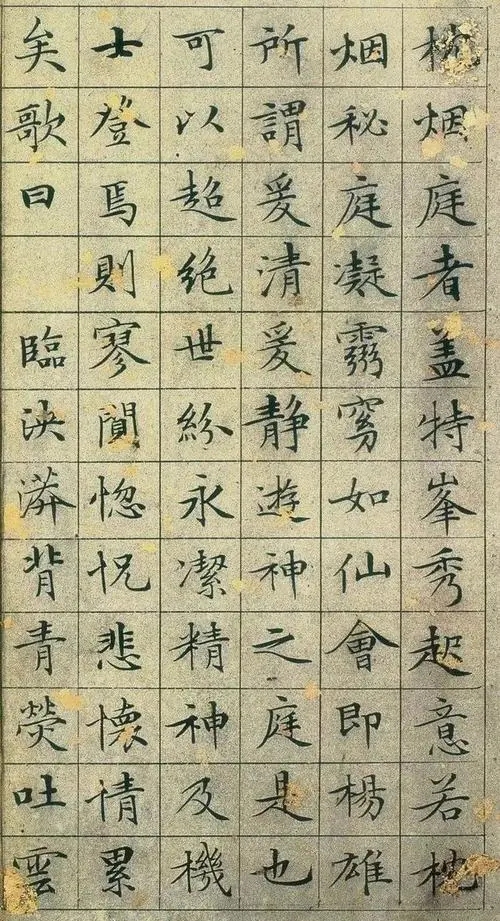 枕烟庭者盖特峯秀起意若枕
烟秘庭凝窈如仙會即楊雄
所謂爰清爰静遊神之庭是也
可以超絶世紛永潔精神及機
士登焉則寥闃惚怳悲懷情累
矣歌曰 臨泱漭背青熒吐雲